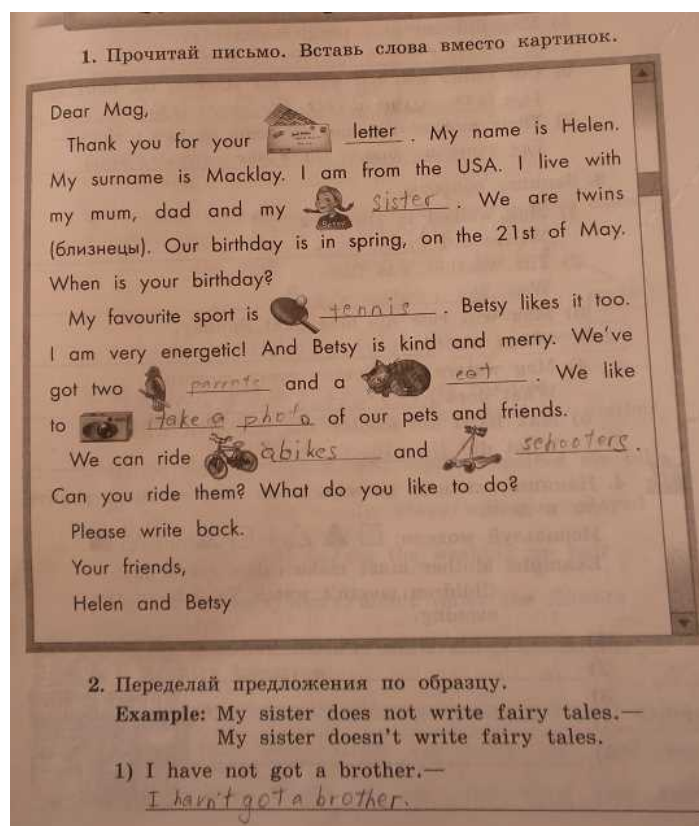 1. Прочитай письмо. Вставь слова вместо картинок.
Dear Mag,
Thank you for your letter . My name is Helen.
My surname is Macklay. I am from the USA. I live with
my mum, dad and my sister . We are twins
(близнецы). Our birthday is in spring, on the 21st of May.
When is your birthday?
My favourite sport is tennis . Betsy likes it too.
I am very energetic! And Betsy is kind and merry. We've
got two parrots and a cat . We like
to take a photo of our pets and friends.
We can ride abikes and schooters .
Can you ride them? What do you like to do?
Please write back.
Your friends,
Helen and Betsy
2. Переделай предложения по образцу.
Example: My sister does not write fairy tales.—
My sister doesn't write fairy tales.
1) I have not got a brother.—
I havn't got a brother.